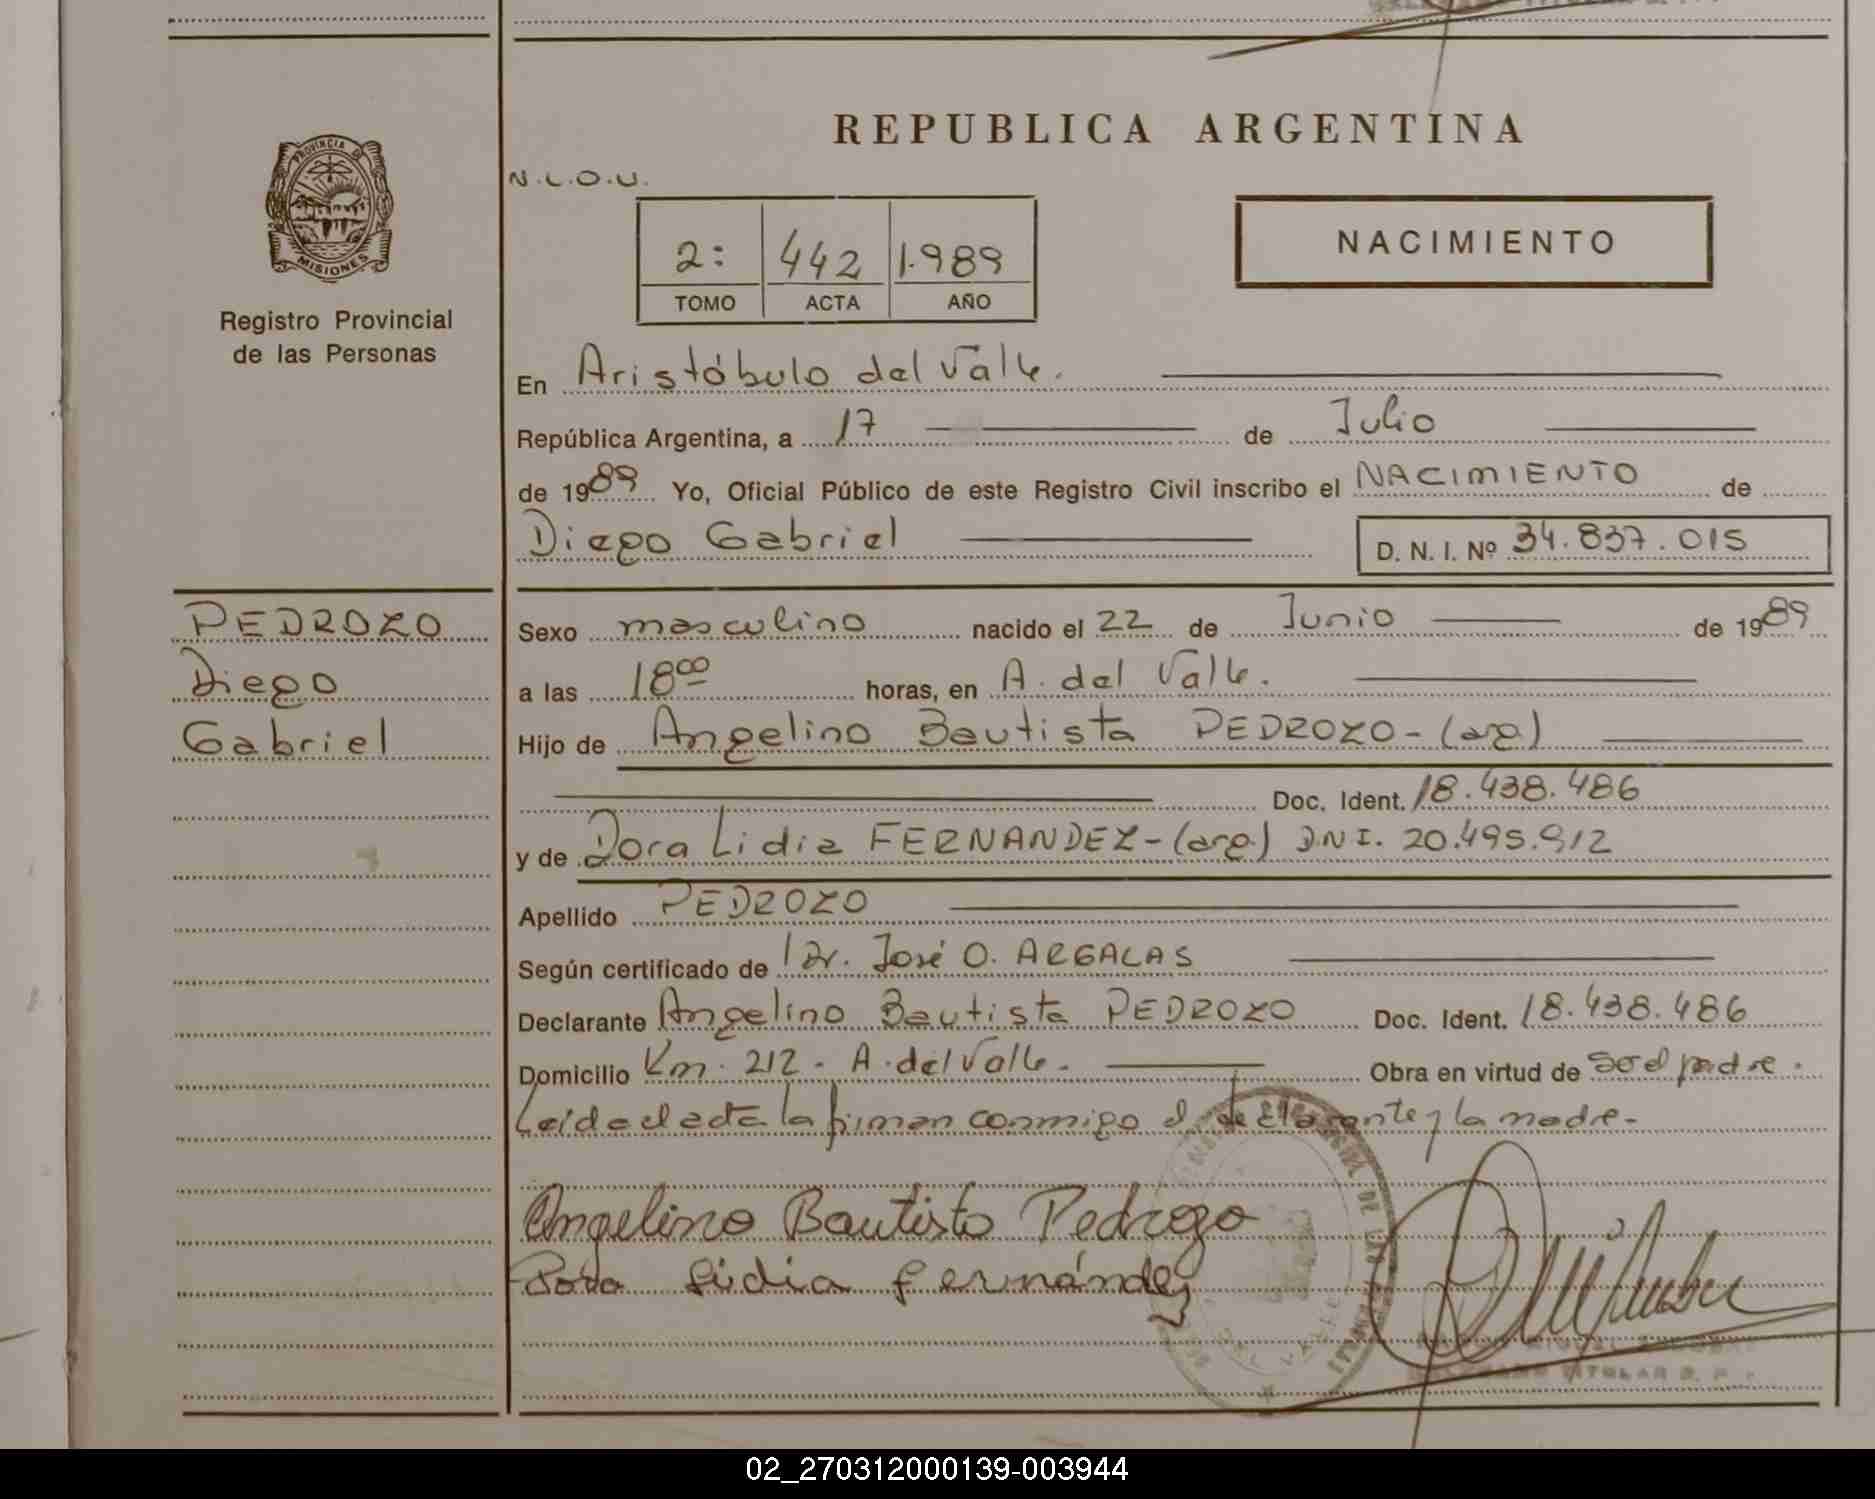 REPUBLICA ARGENTINA
PROVINCIA DE
MISIONES
Registro Provincial
de las Personas
N.L.O.U.
2: 442 1.989
TOMO ACTA AÑO
NACIMIENTO
En Aristóbulo del Valle.
República Argentina, a 17 de Julio
de 1989 Yo, Oficial Público de este Registro Civil inscribo el NACIMIENTO de
Diego Gabriel D. N. I. Nº 34.837.015
PEDROZO
Diego
Gabriel
Sexo masculino nacido el 22 de Junio de 1989
a las 18 00 horas, en A. del Valle.
Hijo de Angelino Bautista PEDROZO - (arg)
Doc. Ident. 18.438.486
y de Dora Lidia FERNANDEZ - (arg) DNI. 20.495.912
Apellido PEDROZO
Según certificado de Dr. José O. ARGALAS
Declarante Angelino Bautista PEDROZO Doc. Ident. 18.438.486
Domicilio Km. 212 - A. del Valle. Obra en virtud de ser el padre.
Leida el acta la firman conmigo el declarante y la madre.
Angelino Bautisto Pedrozo
Dora Lidia Fernández
TITULAR R. P.
02_270312000139-003944